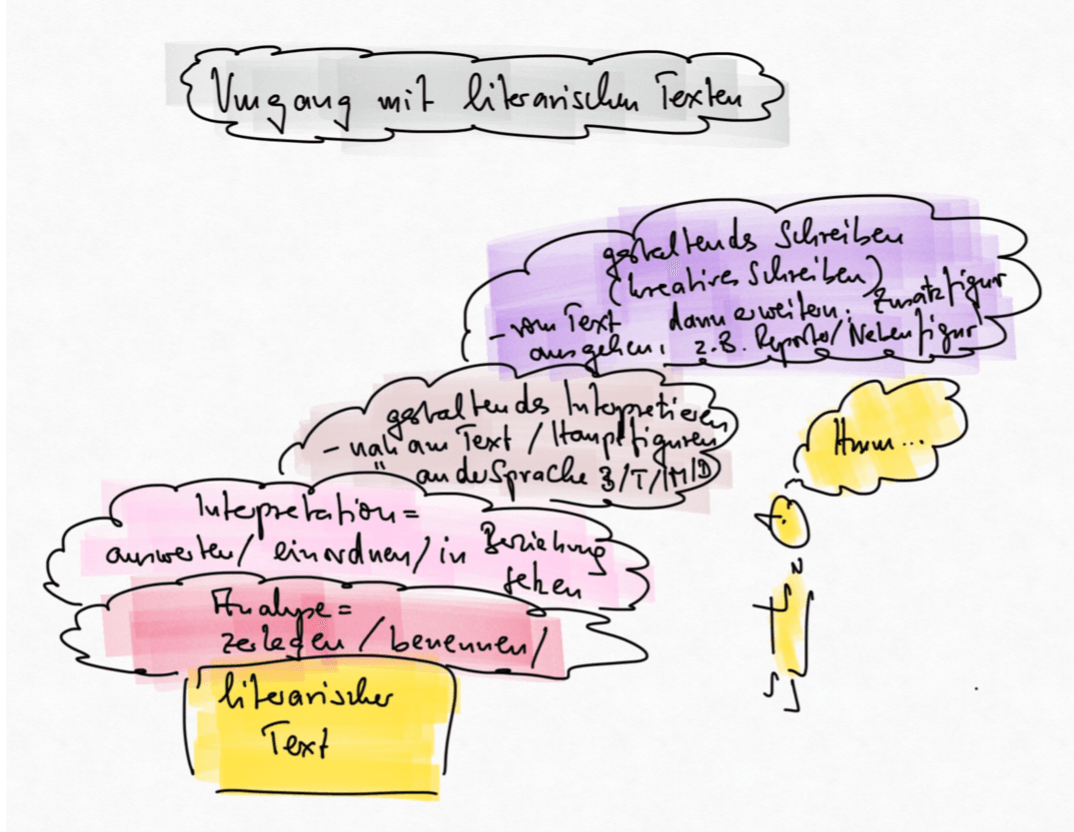 Umgang mit literarischen Texten
gestaltendes Schreiben
(kreatives Schreiben)
- vom Text dann erweitern. Zusatzfigur
ausgehen, z.B. Reporter/Nebenfigur
gestaltendes Interpretieren
- nah am Text / Hauptfiguren
an der Sprache 3/T/M/D
Hmm...
Interpretation =
auswerten/ einordnen/ in Beziehung
setzen
Analyse =
zerlegen / benennen/
literarischer
Text